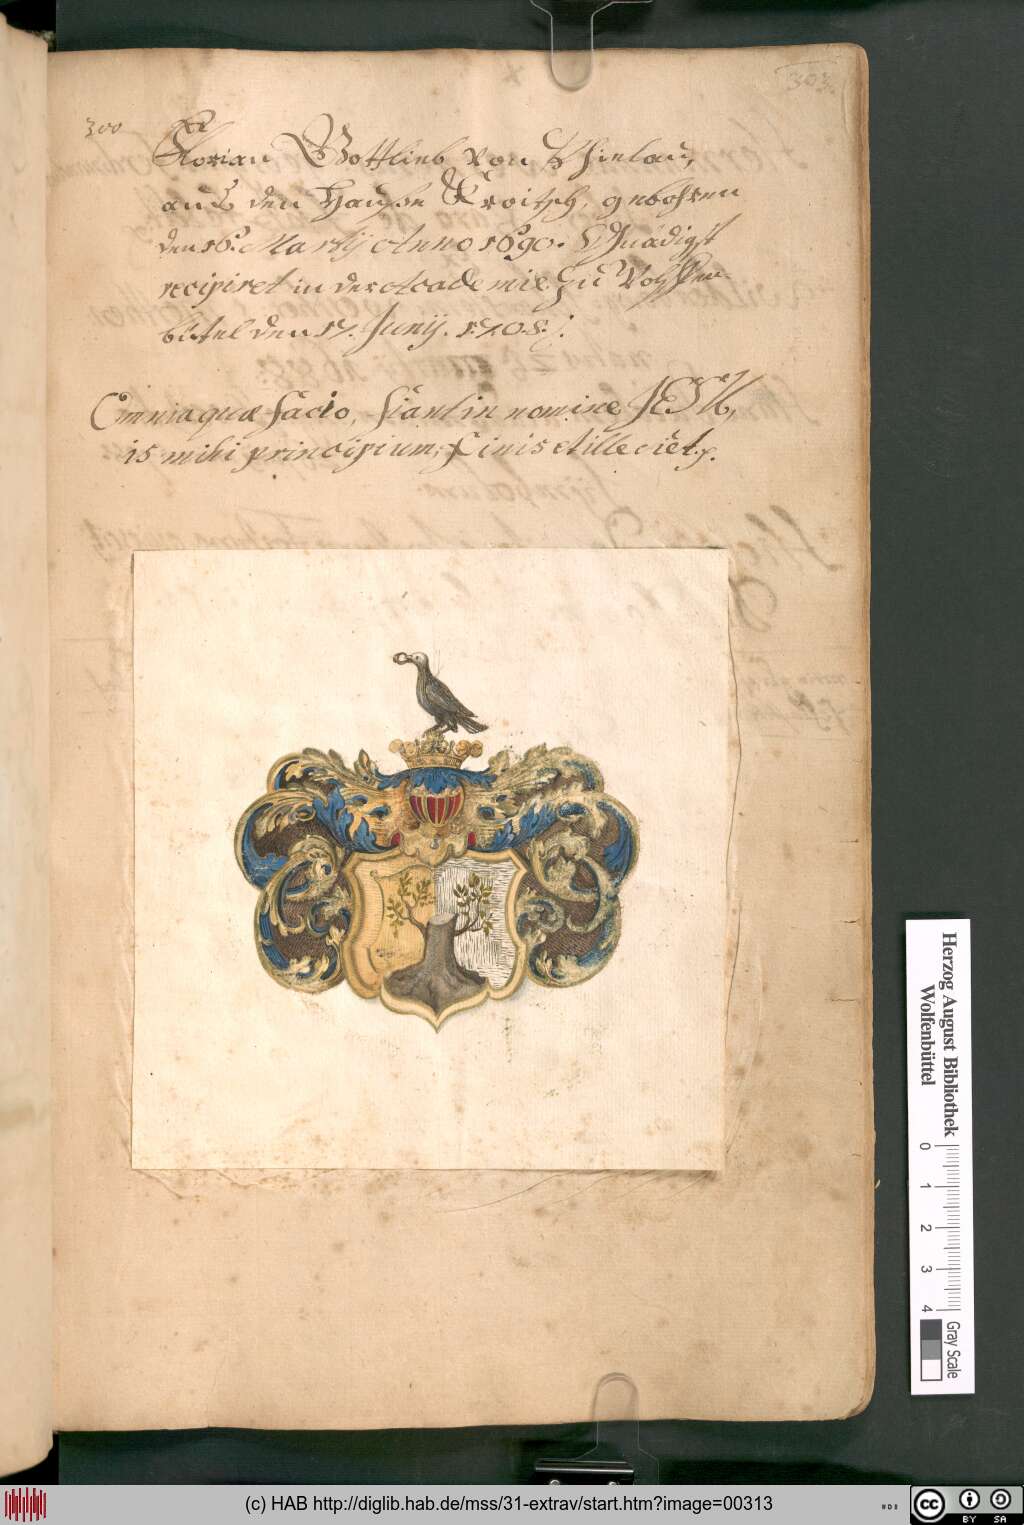 303.
300
Florian Gottlieb von Thielau,
aus den Hauße Kroitsch, gebohren
den 16. Martij Anno 1690. Gnädigst
recipiret in der Academie zu Wolffen-
büttel den 17. Junij. 1708.
Omnia quæ facio, fiant in nomine JESU,
is mihi principium, Finis et ille riet.
Herzog August Bibliothek
Wolfenbüttel
0 1 2 3 4
Gray Scale
(c) HAB http://diglib.hab.de/mss/31-extrav/start.htm?image=00313
cc BY SA